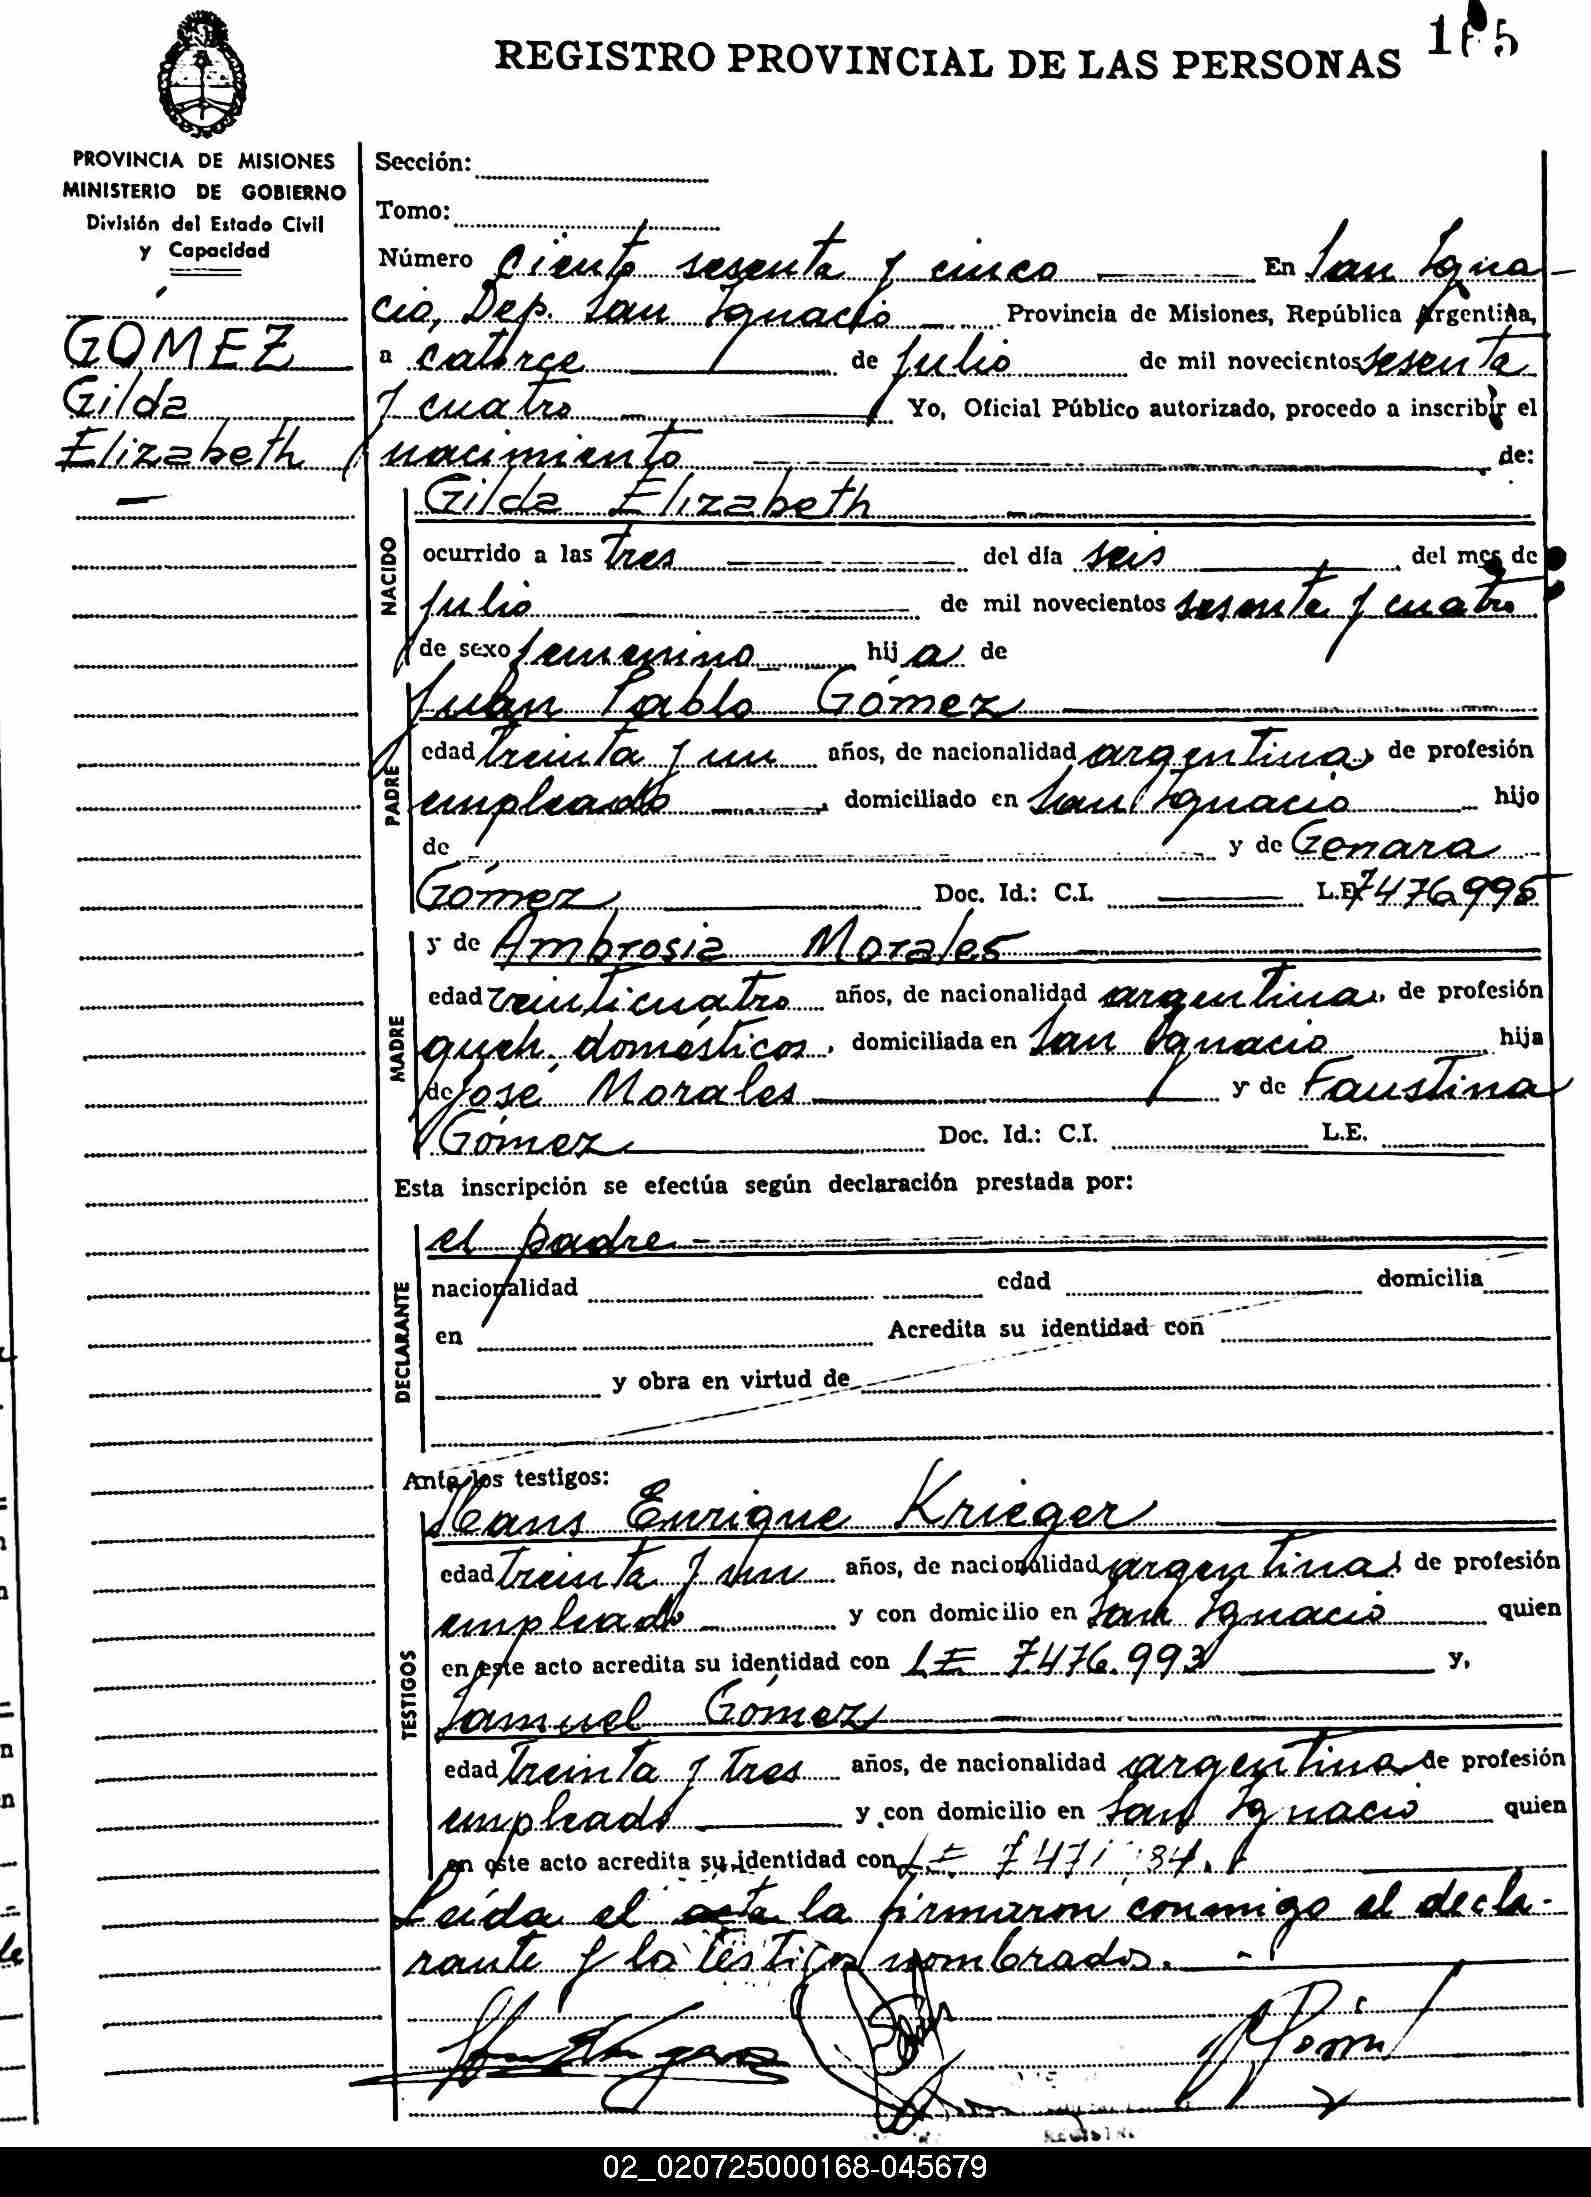 REGISTRO PROVINCIAL DE LAS PERSONAS
PROVINCIA DE MISIONES
MINISTERIO DE GOBIERNO
División del Estado Civil
y Capacidad
GOMEZ
Gilda
Elizabeth
Sección:
Tomo:
Número Ciento sesenta y cinco En San Igna
cio, Dep. San Ignacio Provincia de Misiones, República Argentina,
a catorce de julio de mil novecientos sesenta
y cuatro Yo, Oficial Público autorizado, procedo a inscribir el
nacimiento de:
NACIDO
Gilda Elizabeth
ocurrido a las tres del día seis del mes de
julio de mil novecientos sesenta y cuatro
de sexo femenino hija de
PADRE
Juan Pablo Gómez
edad treinta y un años, de nacionalidad argentina, de profesión
empleado, domiciliado en San Ignacio hijo
de y de Genara
Gómez Doc. Id.: C.I. L.E. 7476995
MADRE
y de Ambrosia Morales
edad veinticuatro años, de nacionalidad argentina, de profesión
queh. domésticos, domiciliada en San Ignacio hija
de José Morales y de Faustina
Gómez Doc. Id.: C.I. L.E.
Esta inscripción se efectúa según declaración prestada por:
DECLARANTE
el padre
nacionalidad edad domicilia
en Acredita su identidad con
y obra en virtud de
Ante los testigos:
TESTIGOS
Hans Enrique Krieger
edad treinta y un años, de nacionalidad argentina, de profesión
empleado y con domicilio en San Ignacio quien
en este acto acredita su identidad con LE 7476.993 y,
Samuel Gómez
edad treinta y tres años, de nacionalidad argentina de profesión
empleado y con domicilio en San Ignacio quien
en este acto acredita su identidad con LE
Leída el acta la firmaron conmigo el decla-
rante y los testigos nombrados.
02_020725000168-045679